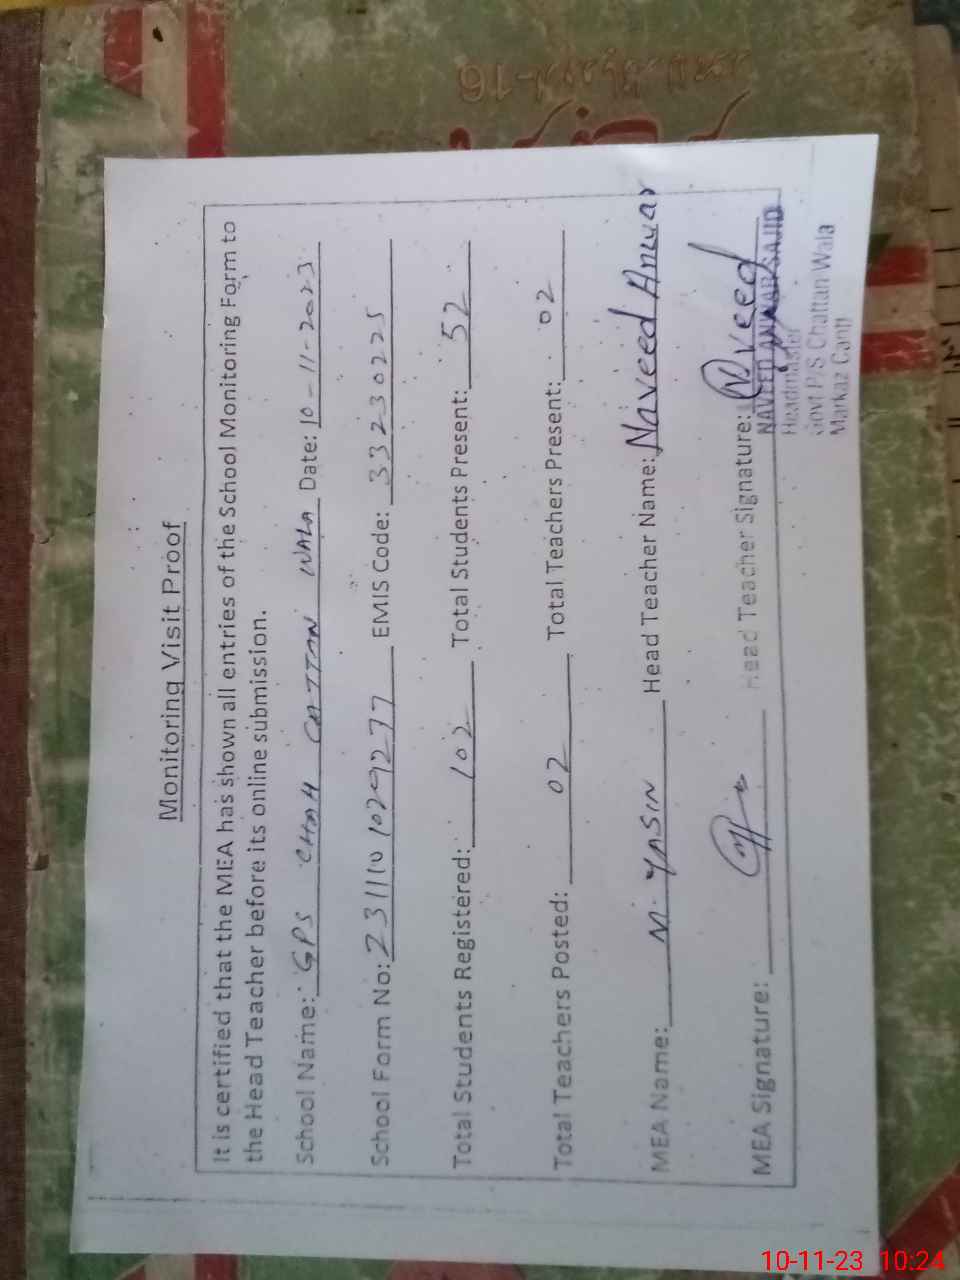 Monitoring Visit Proof
It is certified that the MEA has shown all entries of the School Monitoring Form to
the Head Teacher before its online submission.
School Name: GPS CHAH CHATTAN WALA Date: 10-11-2023
School Form No: 231110 1029237 EMIS Code: 33230225
Total Students Registered: 102 Total Students Present: 52
Total Teachers Posted: 02 Total Teachers Present: 02
MEA Name: M. YASIN Head Teacher Name: Naveed Anwar
MEA Signature: Head Teacher Signature: Naveed
NAVEED ANWAR SAJID
Headmaster
Govt P/S Chattan Wala
Markaz Cantt
10-11-23 10:24